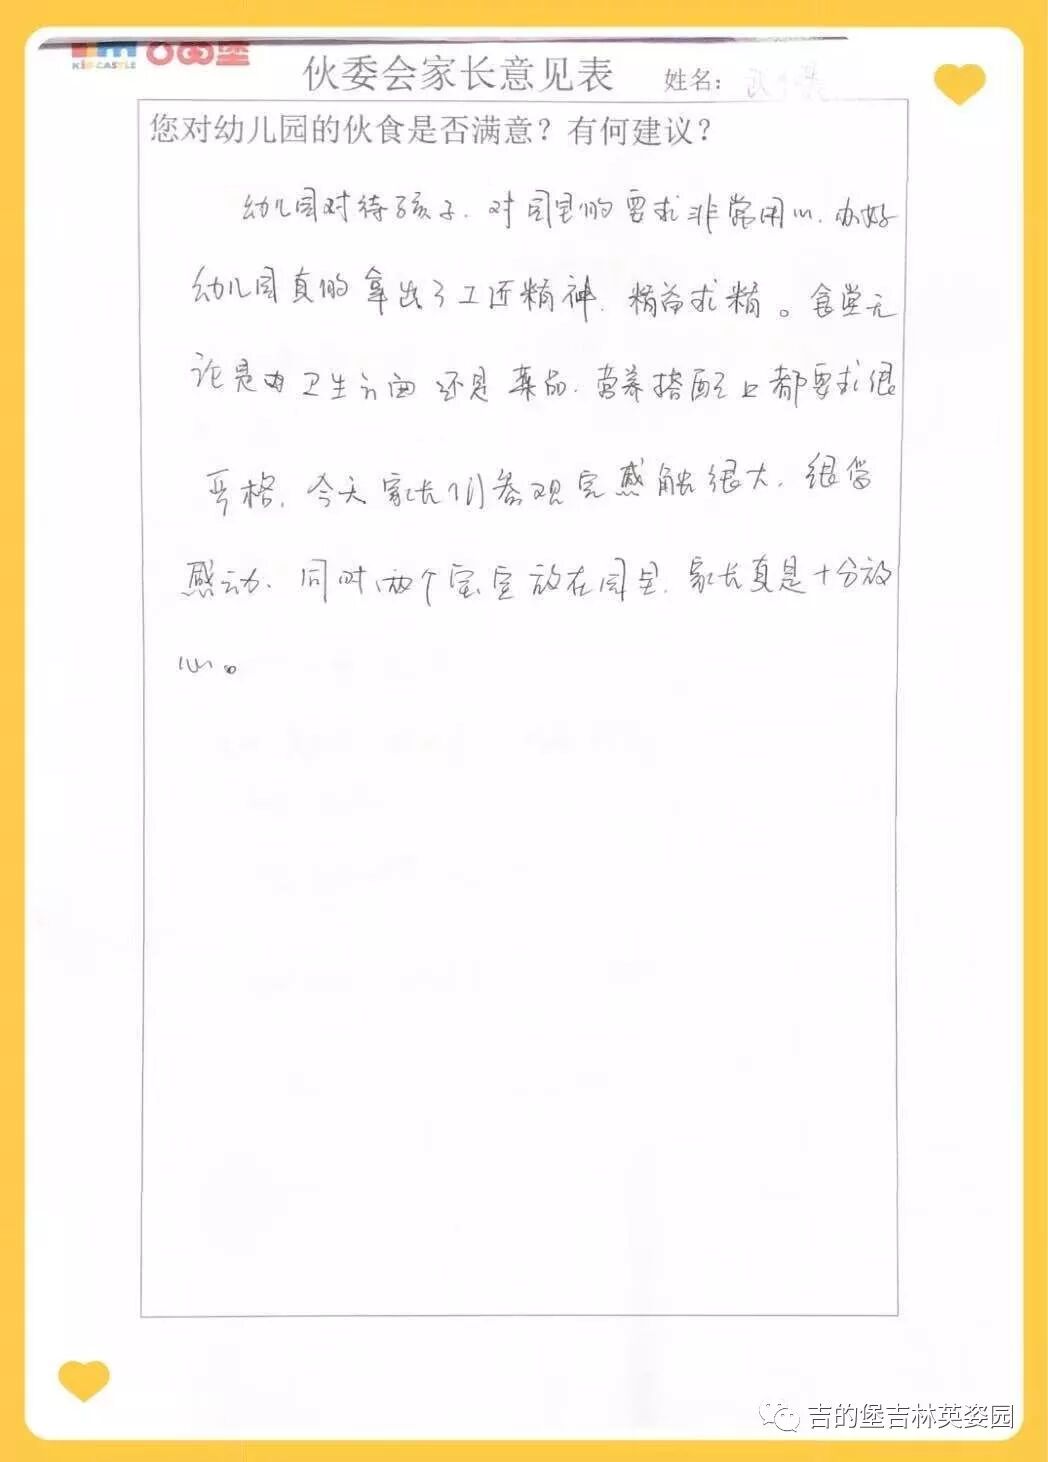 KID CASTLE
伙委会家长意见表 姓名:
您对幼儿园的伙食是否满意？有何建议？
幼儿园对待孩子.对园里的要求非常用心.办好
幼儿园真的拿出了工匠精神.精益求精。食堂无
论是对卫生方面还是菜品.营养搭配上都要求很
严格.今天家长们参观完感触很大.很受
感动.同时两个宝宝放在园里.家长真是十分放
心。
吉的堡吉林英姿园